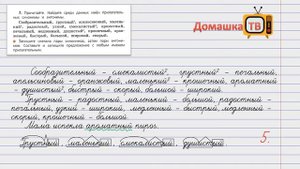 8. Прочитайте. Найдите среди данных имён прилагательных синонимы и антонимы.
Сообразительный, грустный, крошечный, маленький, радостный, узкий, смекалистый, ароматный, печальный, медленный, душистый, оранжевый, быстрый, большой, широкий, скорый.
Запишите сначала пары синонимов, затем пары антонимов. Составьте и запишите предложение с любым именем прилагательным.
Домашка ТВ
Сообразительный – смекалистый², грустный² – печальный,
апельсиновый – оранжевый, маленький² – крошечный, ароматный
– душистый², быстрый – скорый, большой – широкий.
Грустный – радостный, маленький – большой, радостный –
печальный, узкий – широкий, медленный – быстрый, медленный –
скорый, крошечный – большой.
Мама испекла ароматный пирог.
Грустный, маленький, смекалистый, душистый
5.